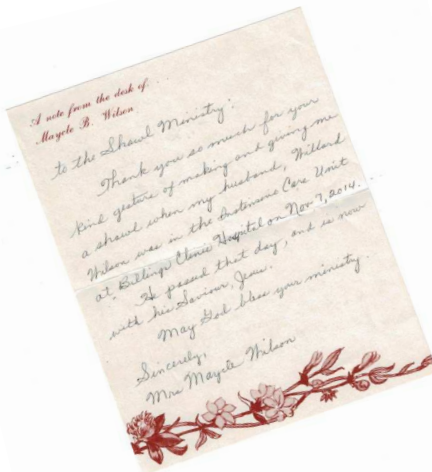 A note from the desk of...
Maycle B. Wilson
to the Shawl Ministry.
Thank you so much for your
kind gesture of making and giving me
a shawl when my husband, Willard
Wilson was in the Intensive Care Unit
at Billings Clinic Hospital on Nov 7, 2014.
He passed that day, and is now
with his Saviour, Jesus.
May God bless your ministry.
Sincerely,
Mrs Maycle Wilson